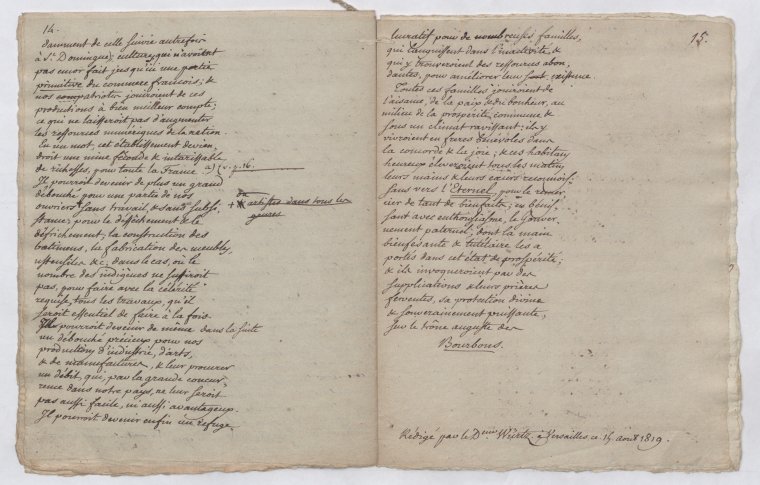 14.
damment de celle suivie autrefois
à St. Domingue; culture, qui n'avoit
pas encor fait jusqu'ici une partie
primative du commerce francois; &
nos compatriotes jouiroient de ces
productions à bien meilleur compte;
ce qui ne laisseroit pas d'augmenter
les ressources numériques de la nation.
En un mot, cet établissement devien,
droit une mine féconde & intarissable
de richesses, pour toute la France. v. p. 16.
Il pourroit devenir de plus un grand
débouché, pour une partie de nos
ouvriers + sans travail, & sans subsis,
+ ou artistes dans tous les
genres
stance; pour le défrichement & le
défrichement, la construction des
batimens, la fabrication des meubles,
ustensiles &c; dans le cas, où le
nombre des indigènes ne suffiroit
pas, pour faire avec la célérité
requise, tous les travaux, qu'il
seroit essentiel de faire à la fois
Il pourroit devenir de même dans la suite
un débouché précieux pour nos
productions d'industrie, d'arts,
& de manufactures, & leur procurer
un débit, qui, par la grande concur,
rence dans notre pays, ne leur seroit
pas aussi facile, ni aussi avantageux.
Il pourroit devenir enfin un refuge
15.
lucratif pour de nombreuses familles,
qui languissent dans l'inactivité, &
qui y trouveroient des ressources abon,
dantes, pour améliorer leur existence.
Toutes ces familles jouiroient de
l'aisance, de la paix & du bonheur, au
milieu de la prospérité commune &
sous un climat ravissant; ils y
vivroient en frères bénévoles dans
la concorde & la joie; & ces habitans
heureux éleveroient tous les matins
leurs mains & leurs cœurs reconnois,
sans vers l'Eternel, pour le remer,
cier de tant de bienfaits; en bénis,
sant avec enthousiasme, le Gouver,
nement paternel, dont la main
bienfesante & tutélaire les a
portés dans cet état de prospérité;
& ils invoqueroient par des
supplications & leurs prières
ferventes, sa protection divine
& souverainement puissante,
sur le trône auguste des
Bourbons.
Rédigé par le Dr. Würtz à Versailles ce 14 août 1819.